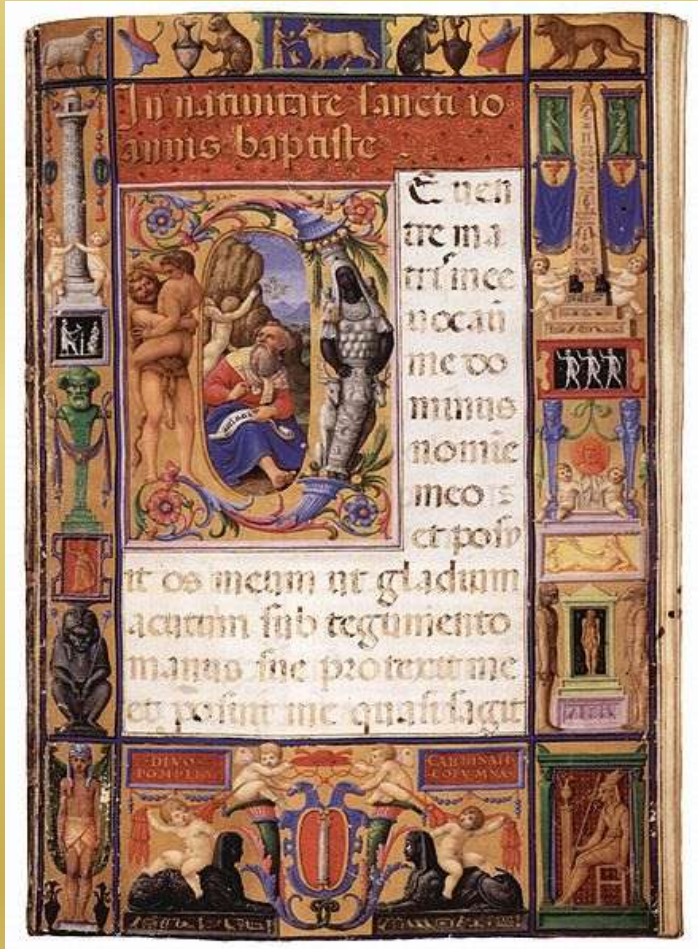 In natiuitate sancti io
annis baptiste
D
E uen
tre ma
tris mee
uocaū
me do
minus
nomīe
meo :
et posu
it os meum ut gladium
acutum sub tegumento
manus sue protexit me
et posuit me quasi sagit
DIVO·
POMPEIO
CARDINALI
·COLVMNA·